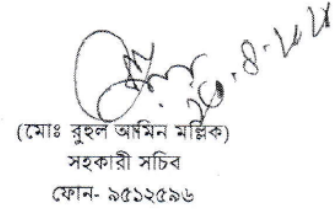 (মোঃ রুহুল আমিন মল্লিক)
সহকারী সচিব
ফোন- ৯৫১২৫৯৬